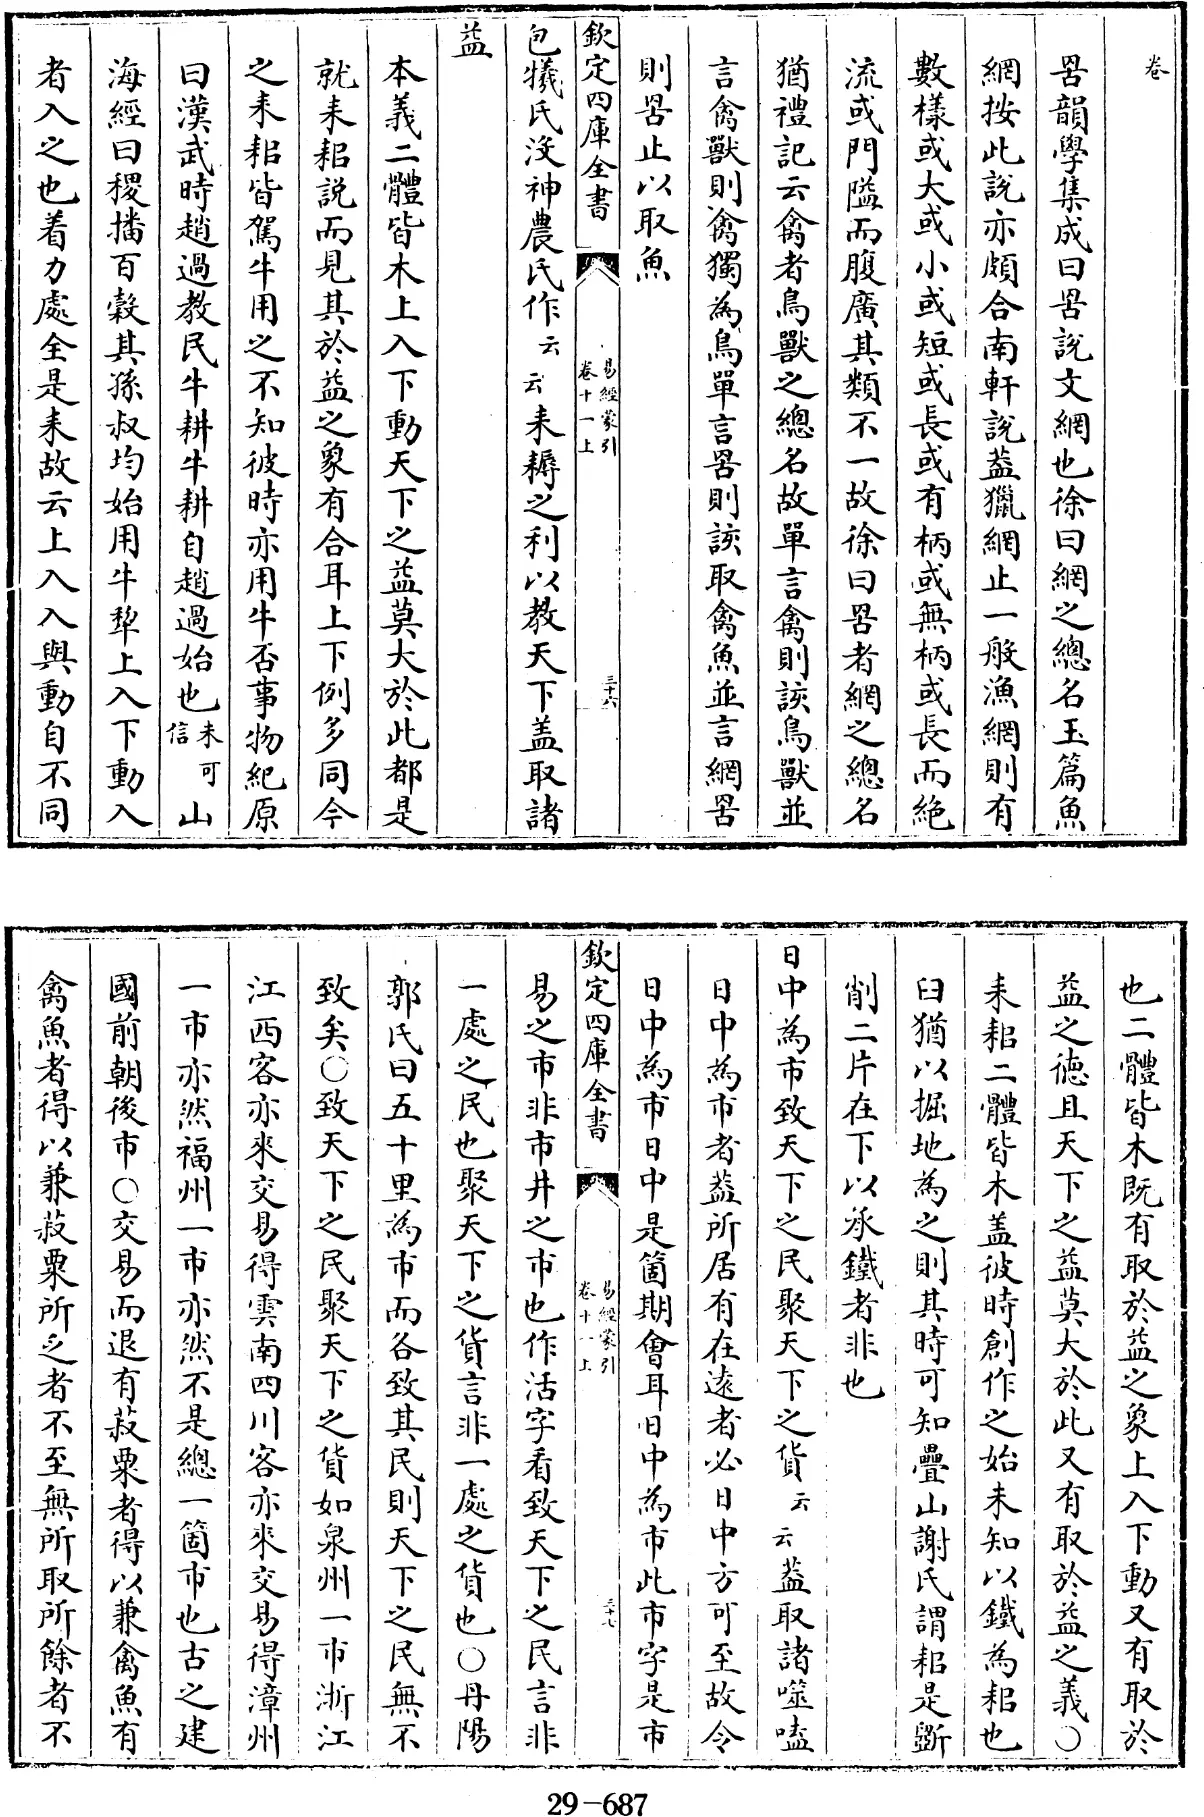 卷
罟韻學集成曰罟説文網也徐曰網之總名玉篇魚
網按此説亦頗合南軒説蓋獵網止一般漁網則有
數樣或大或小或短或長或有柄或無柄或長而絶
流或門隘而腹廣其類不一故徐曰罟者網之總名
猶禮記云禽者鳥獸之總名故單言禽則該鳥獸並
言禽獸則禽獨為鳥單言罟則該取禽魚並言網罟
則罟止以取魚
欽定四庫全書
易經蒙引
卷十一上
三十六
包犧氏沒神農氏作云云耒耨之利以教天下蓋取諸
益
本義二體皆木上入下動天下之益莫大於此都是
就耒耜説而見其於益之象有合耳上下例多同今
之耒耜皆駕牛用之不知彼時亦用牛否事物紀原
曰漢武時趙過教民牛耕牛耕自趙過始也未可信山
海經曰稷播百穀其孫叔均始用牛犂上入下動入
者入之也着力處全是耒故云上入入與動自不同
也二體皆木既有取於益之象上入下動又有取於
益之德且天下之益莫大於此又有取於益之義○
耒耜二體皆木蓋彼時創作之始未知以鐵為耜也
臼猶以掘地為之則其時可知疊山謝氏謂耜是斲
削二片在下以承鐵者非也
日中為市致天下之民聚天下之貨云云蓋取諸噬嗑
日中為市者蓋所居有在遠者必日中方可至故令
日中為市日中是箇期會耳日中為市此市字是市
欽定四庫全書
易經蒙引
卷十一上
三十七
易之市非市井之市也作活字看致天下之民言非
一處之民也聚天下之貨言非一處之貨也○丹陽
郭氏曰五十里為市而各致其民則天下之民無不
致矣○致天下之民聚天下之貨如泉州一市浙江
江西客亦來交易得雲南四川客亦來交易得漳州
一市亦然福州一市亦然不是總一箇市也古之建
國前朝後市○交易而退有菽粟者得以兼禽魚有
禽魚者得以兼菽粟所乏者不至無所取所餘者不
29-687